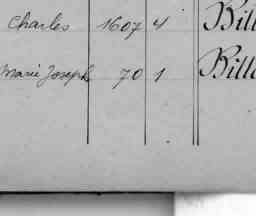 Charles 1607 4 Bill
Marie Joseph 70 1 Bill